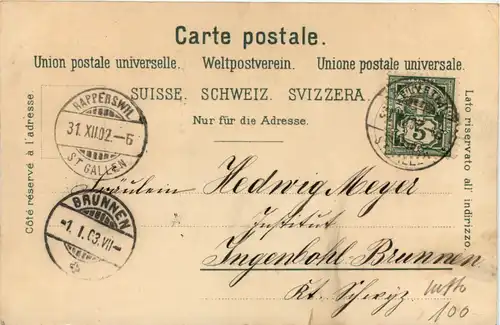 Carte postale.
Union postale universelle. Weltpostverein. Unione postale universale.
SUISSE. SCHWEIZ. SVIZZERA.
Nur für die Adresse.
Côté réservé à l'adresse.
Lato riservato all' indirizzo.
RAPPERSWIL
31. XII.02.-6
ST. GALLEN
BRUNNEN
-1. I. 03. VII-
5
Fräulein Hedwig Meyer
Institut
Ingenbohl-Brunnen
Kt. Schwyz
100